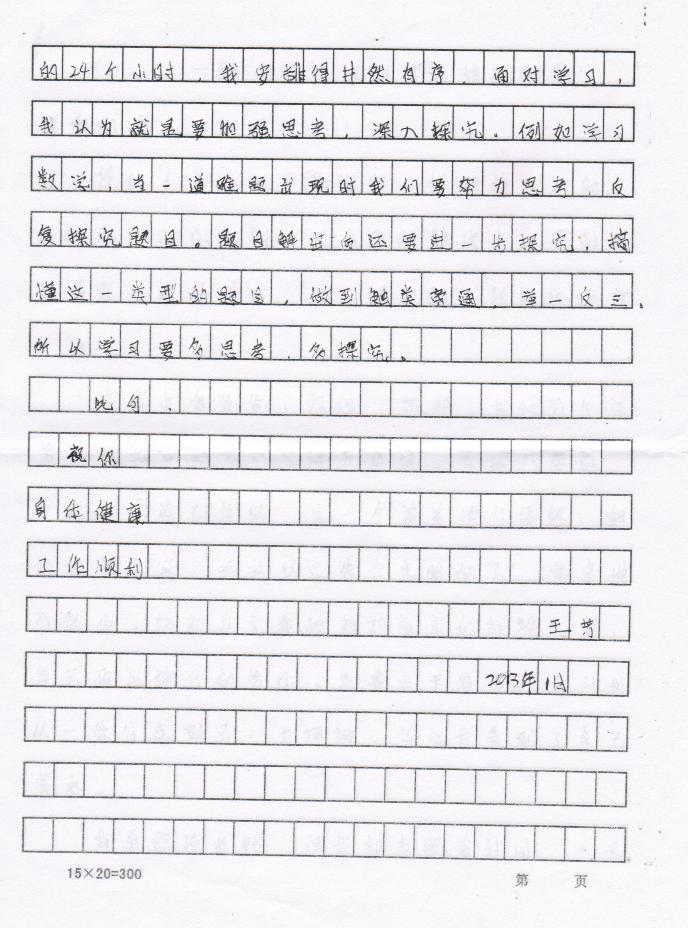 的24个小时，我安排得井然有序，面对学习，
我认为就是要加强思考，深入探究。例如学习
数学，当一道难题出现时我们要努力思考，反
复探究题目，题目解出后还要进一步探究，搞
懂这一类型的题目，做到触类旁通，举一反三。
所以学习要多思考，多探究。
此句。
祝你
身体健康
工作顺利
王芳
2013年1日
15×20=300
第 页